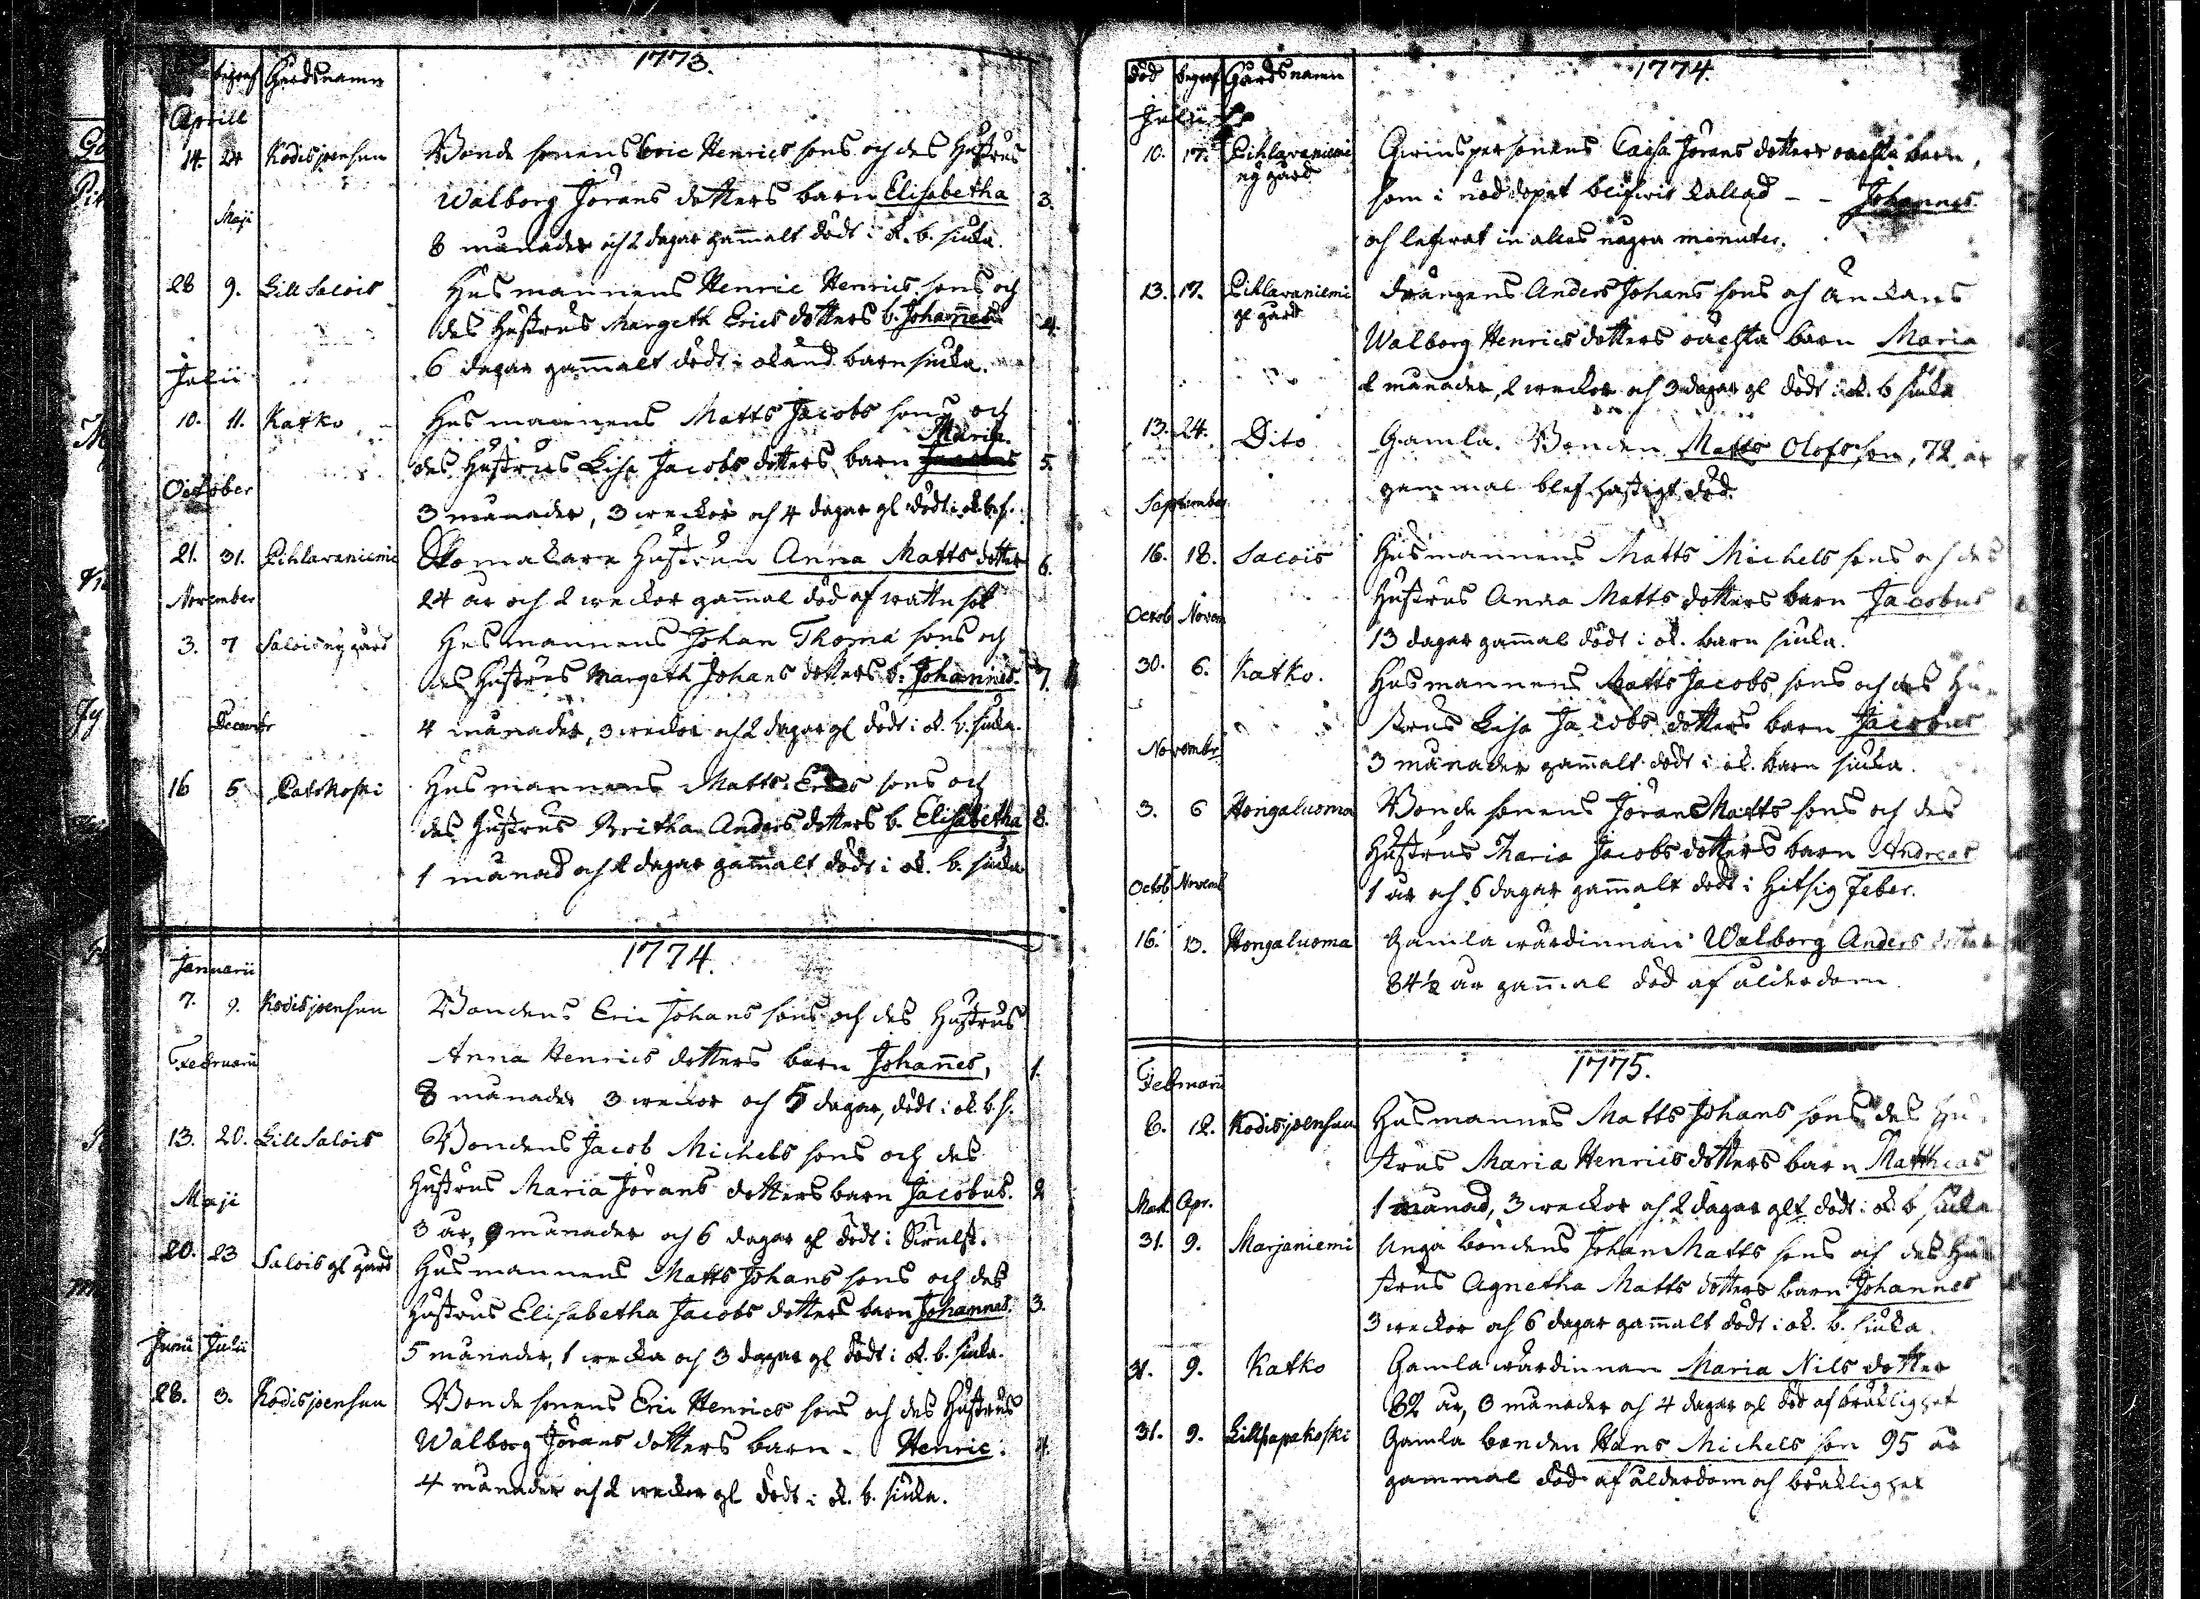 1773.
begraf Gårdsnamn
Aprill
14. 24 Kodisjoensuu Bonde sonens Eric Henrics sons och des Hustrus
Walborg Jörans dotters barn Elisabetha 3.
Maji
8 månader och 2 dagar gam̄alt dödt i ok. b. siuka.
28 9. Lill Salois Husmannens Henric Henrics sons och
des Hustrus Margeth Erics dotters b. Johan̄es 4.
6 dagar gam̄alt dödt i okänd barnsiuka.
Julii
10. 11. Katko Husmannens Matts Jacobs sons och
Maria
des Hustrus Lisa Jacobs dotters barn 5.
October
3 månader, 3 weckor och 4 dagar gl dödt i ok b. s.
21. 31. Pihlavaniemi Skomakare Hustrun Anna Matts dotter 6.
November
24 år och 2 weckor gam̄al död af wattusot
3. 7 Salois ny gård Husmannens Johan Thomæ sons och
des Hustrus Margeth Johans dotters b. Johannes. 7.
Decembr
4 månader, 3 weckor och 2 dagar gl dödt i ok. b. siuka.
16 5 Patokoski Husmannens Matts Erics sons och
des Hustrus Britha Anders dotters b. Elisabetha 8.
1 månad och 2 dagar gam̄alt dödt i ok. b. siuka
1774.
Januarii
7. 9. Kodisjoensuu Bondens Eric Johans sons och des Hustrus
Anna Henrics dotters barn Johan̄es, 1.
Februarii
8 månader 3 weckor och 5 dagar, dödt i ok. b. s.
13. 20. Lill Salois Bondens Jacob Michels sons och des
Hustrus Maria Jörans dotters barn Jacobus. 2
Maji
3 år, 9 månader och 6 dagar gl dödt i
20. 23 Salois gl gård Husmannens Matts Johans sons och des
Hustrus Elisabetha Jacobs dotters barn Johannes. 3.
Junii Julii
5 månader, 1 wecka och 3 dagar gl dödt i ok. b. siuka.
28. 3. Kodisjoensuu Bonde sonens Eric Henrics sons och des Hustrus
Walborg Jörans dotters barn - Henric. 4.
4 månader och 2 weckor gl dödt i ok. b. siuka.
död begraf Gårdsnamn 1774.
Julii
10. 17. Pihlavaniemi Qwinspersonens Caisa Jörans dotters oächta barn,
ny gård
som i nöddopet blifwit kallad - - Johannes.
och lefwat in alles några minuter.
13. 17. Pihlavaniemi Drängens Anders Johans sons och Änckans
gl gård
Walborg Henrics dotters oächta barn Maria
2 månader, 2 weckor och 3 dagar gl dödt i ok. b siuka
13. 24. Dito Gamla Bonden Matts Olofs son, 72 år
gammal blef hastigt död.
September
16. 18. Salois Husmannens Matts Michels sons och des
Hustrus Anna Matts dotters barn Jacobus
Octob Novem
13 dagar gam̄al dödt i ok. barn siuka.
30. 6. Katko. Husmannens Matts Jacobs sons och des Hu-
strus Lisa Jacobs dotters barn Jacobus
Novembr
3 månader gam̄alt dödt i ok. barn siuka.
3. 6 Hongaluoma Bonde sonens Jörans Matts sons och des
Hustrus Maria Jacobs dotters barn Andreas
Octob Novemb
1 år och 6 dagar gam̄alt dödt i Hitsig feber.
16. 13. Hongaluoma Gamla wärdinnan Walborg Anders dotter
84½ år gam̄al död af ålderdom
1775.
Februarii
6. 12. Kodisjoensuu Husmannes Matts Johans sons des Hu-
strus Maria Henrics dotters barn Matthias
Mart Apr.
1 månad, 3 weckor och 2 dagar glt dödt i ok b siuka
31. 9. Marjaniemi Unga bondens Johan Matts sons och des Hu-
strus Agnetha Matts dotters barn Johannes
3 weckor och 6 dagar gam̄alt dödt i ok. b. siuka.
31. 9. Katko Gamla wärdinnan Maria Nils dotter
82 år, 3 månader och 4 dagar gl död af bräklighet
31. 9. Lillpapakoski Gamla bonden Hans Michels son 95 år
gammal död af ålderdom och bräklighet